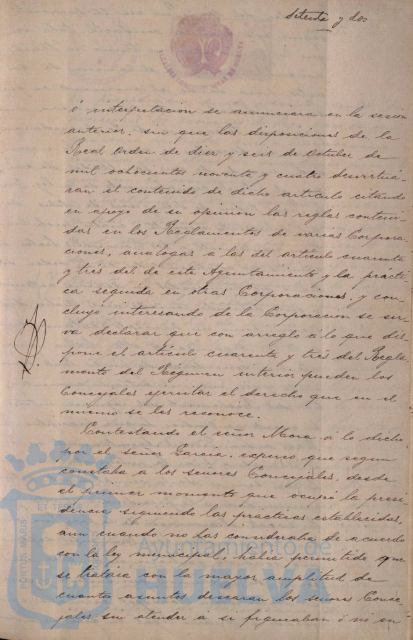 Setenta y dos
ó interpretación se anunciara en la sesión
anterior, sin que las disposiciones de la
Real Orden de diez y seis de Octubre de
mil ochocientos noventa y cuatro desvirtua-
ran el contenido de dicho artículo citando
en apoyo de su opinión las reglas conteni-
das en los Reglamentos de varias Corpora-
ciones, análogas á las del artículo cuarenta
y tres del de este Ayuntamiento y la prácti-
ca seguida en otras Corporaciones, y con-
cluyó interesando de la Corporación se sir-
va declarar que con arreglo á lo que dis-
pone el artículo cuarenta y tres del Regla-
mento del Régimen interior pueden los
Concejales ejercitar el derecho que en el
mismo se les reconoce.
Contestando el señor Mora á lo dicho
por el señor García, expuso que segun
constaba á los señores Concejales, desde
el primer momento que ocupó la presi-
dencia siguiendo las prácticas establecidas,
aun cuando no las consideraba de acuerdo
con la ley municipal, habia permitido que
se tratara con la mayor amplitud de
cuantos asuntos desearan los señores Conce-
jales sin atender á si figuraban ó no en
Ayuntamiento de
HUELVA
PORTUS MARIS
ET TE